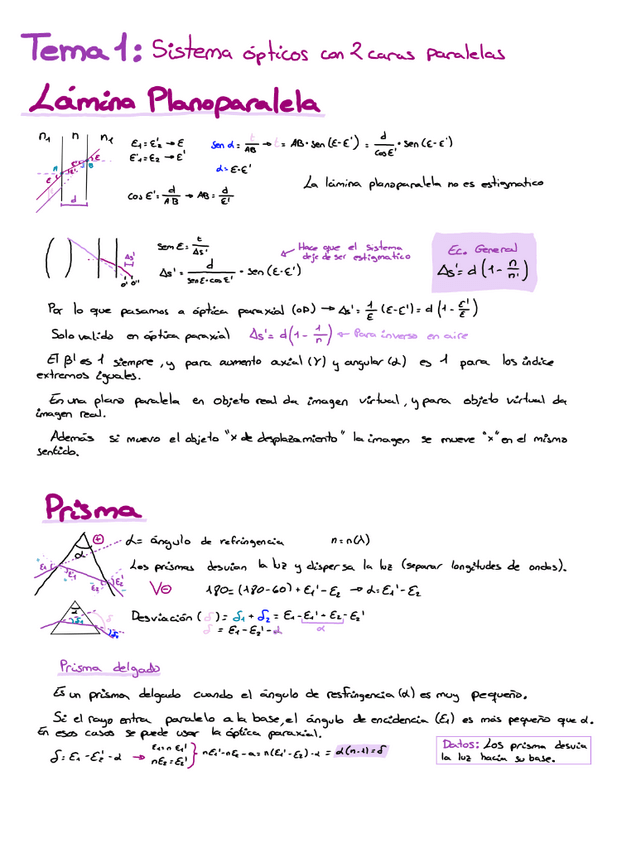 Tema 1: Sistema ópticos con 2 caras paralelas
Lámina Planoparalela
n₁ n n₂
ε₁ = ε'₂ → ε
ε'₁ = ε₂ → ε'
sen α = t/AB → t = AB · sen (ε-ε') = d/cos ε' · sen (ε-ε')
α = ε-ε'
cos ε' = d/AB → AB = d/ε'
La lámina planoparalela no es estigmatico
d
sen ε = t/Δs'
Δs' = d/(sen ε · cos ε') · sen (ε-ε')
Hace que el sistema
deje de ser estigmatico
Δs'
o' o''
Ec. General
Δs' = d (1 - n/n')
Por lo que pasamos a óptica paraxial (OD) → Δs' = 1/ε (ε-ε') = d (1 - ε'/ε)
Solo valido en óptica paraxial Δs' = d (1 - 1/n) ← Para inverso en aire
El β' es 1 siempre, y para aumento axial (γ) y angular (α) es 1 para los índice
extremos iguales.
En una plano paralela en objeto real da imagen virtual, y para objeto virtual da
imagen real.
Además si muevo el objeto "x de desplazamiento" la imagen se mueve "x" en el mismo
sentido.
Prisma
α = ángulo de refringencia n = n(λ)
Los prismas desvían la luz y dispersa la luz (separar longitudes de ondas).
180 = (180-60) + ε₁' - ε₂ → α = ε₁' - ε₂
Desviación (δ) = δ₁ + δ₂ = ε₁ - ε₁' + ε₂ - ε₂'
α
δ = ε₁ - ε₂' - α
Prisma delgado
Es un prisma delgado cuando el ángulo de resfringencia (α) es muy pequeño.
Si el rayo entra paralelo a la base, el ángulo de encidencia (ε₁) es más pequeño que α.
En esos casos se puede usar la óptica paraxial.
δ = ε₁ - ε₂' - α → ε₁ = n ε₁'
nε₂ = ε₂' } nε₁' - nε₂ - α = n(ε₁' - ε₂) - α = α(n-1) = δ
Datos: Los prisma desvia
la luz hacia su base.